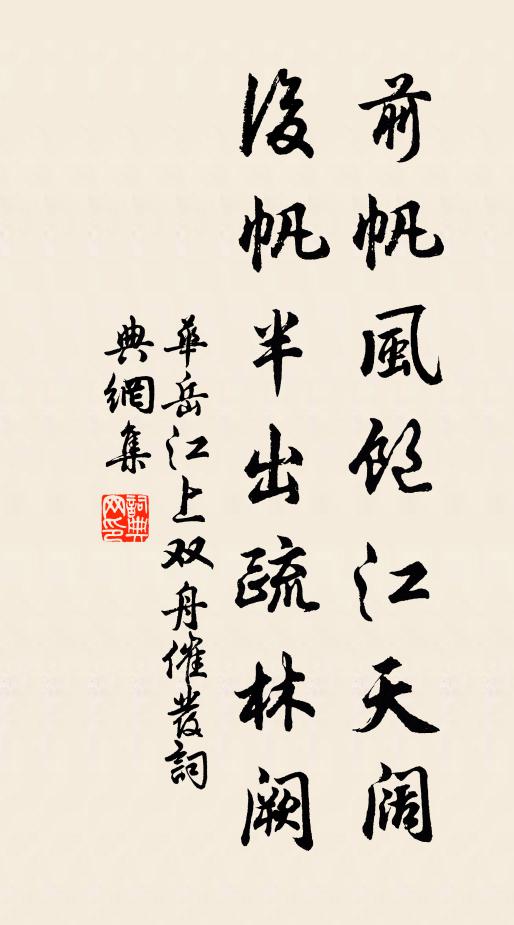 前帆風飽江天闊
後帆半出疏林闕
華岳江上双舟催發詞
典網集
詞典網印